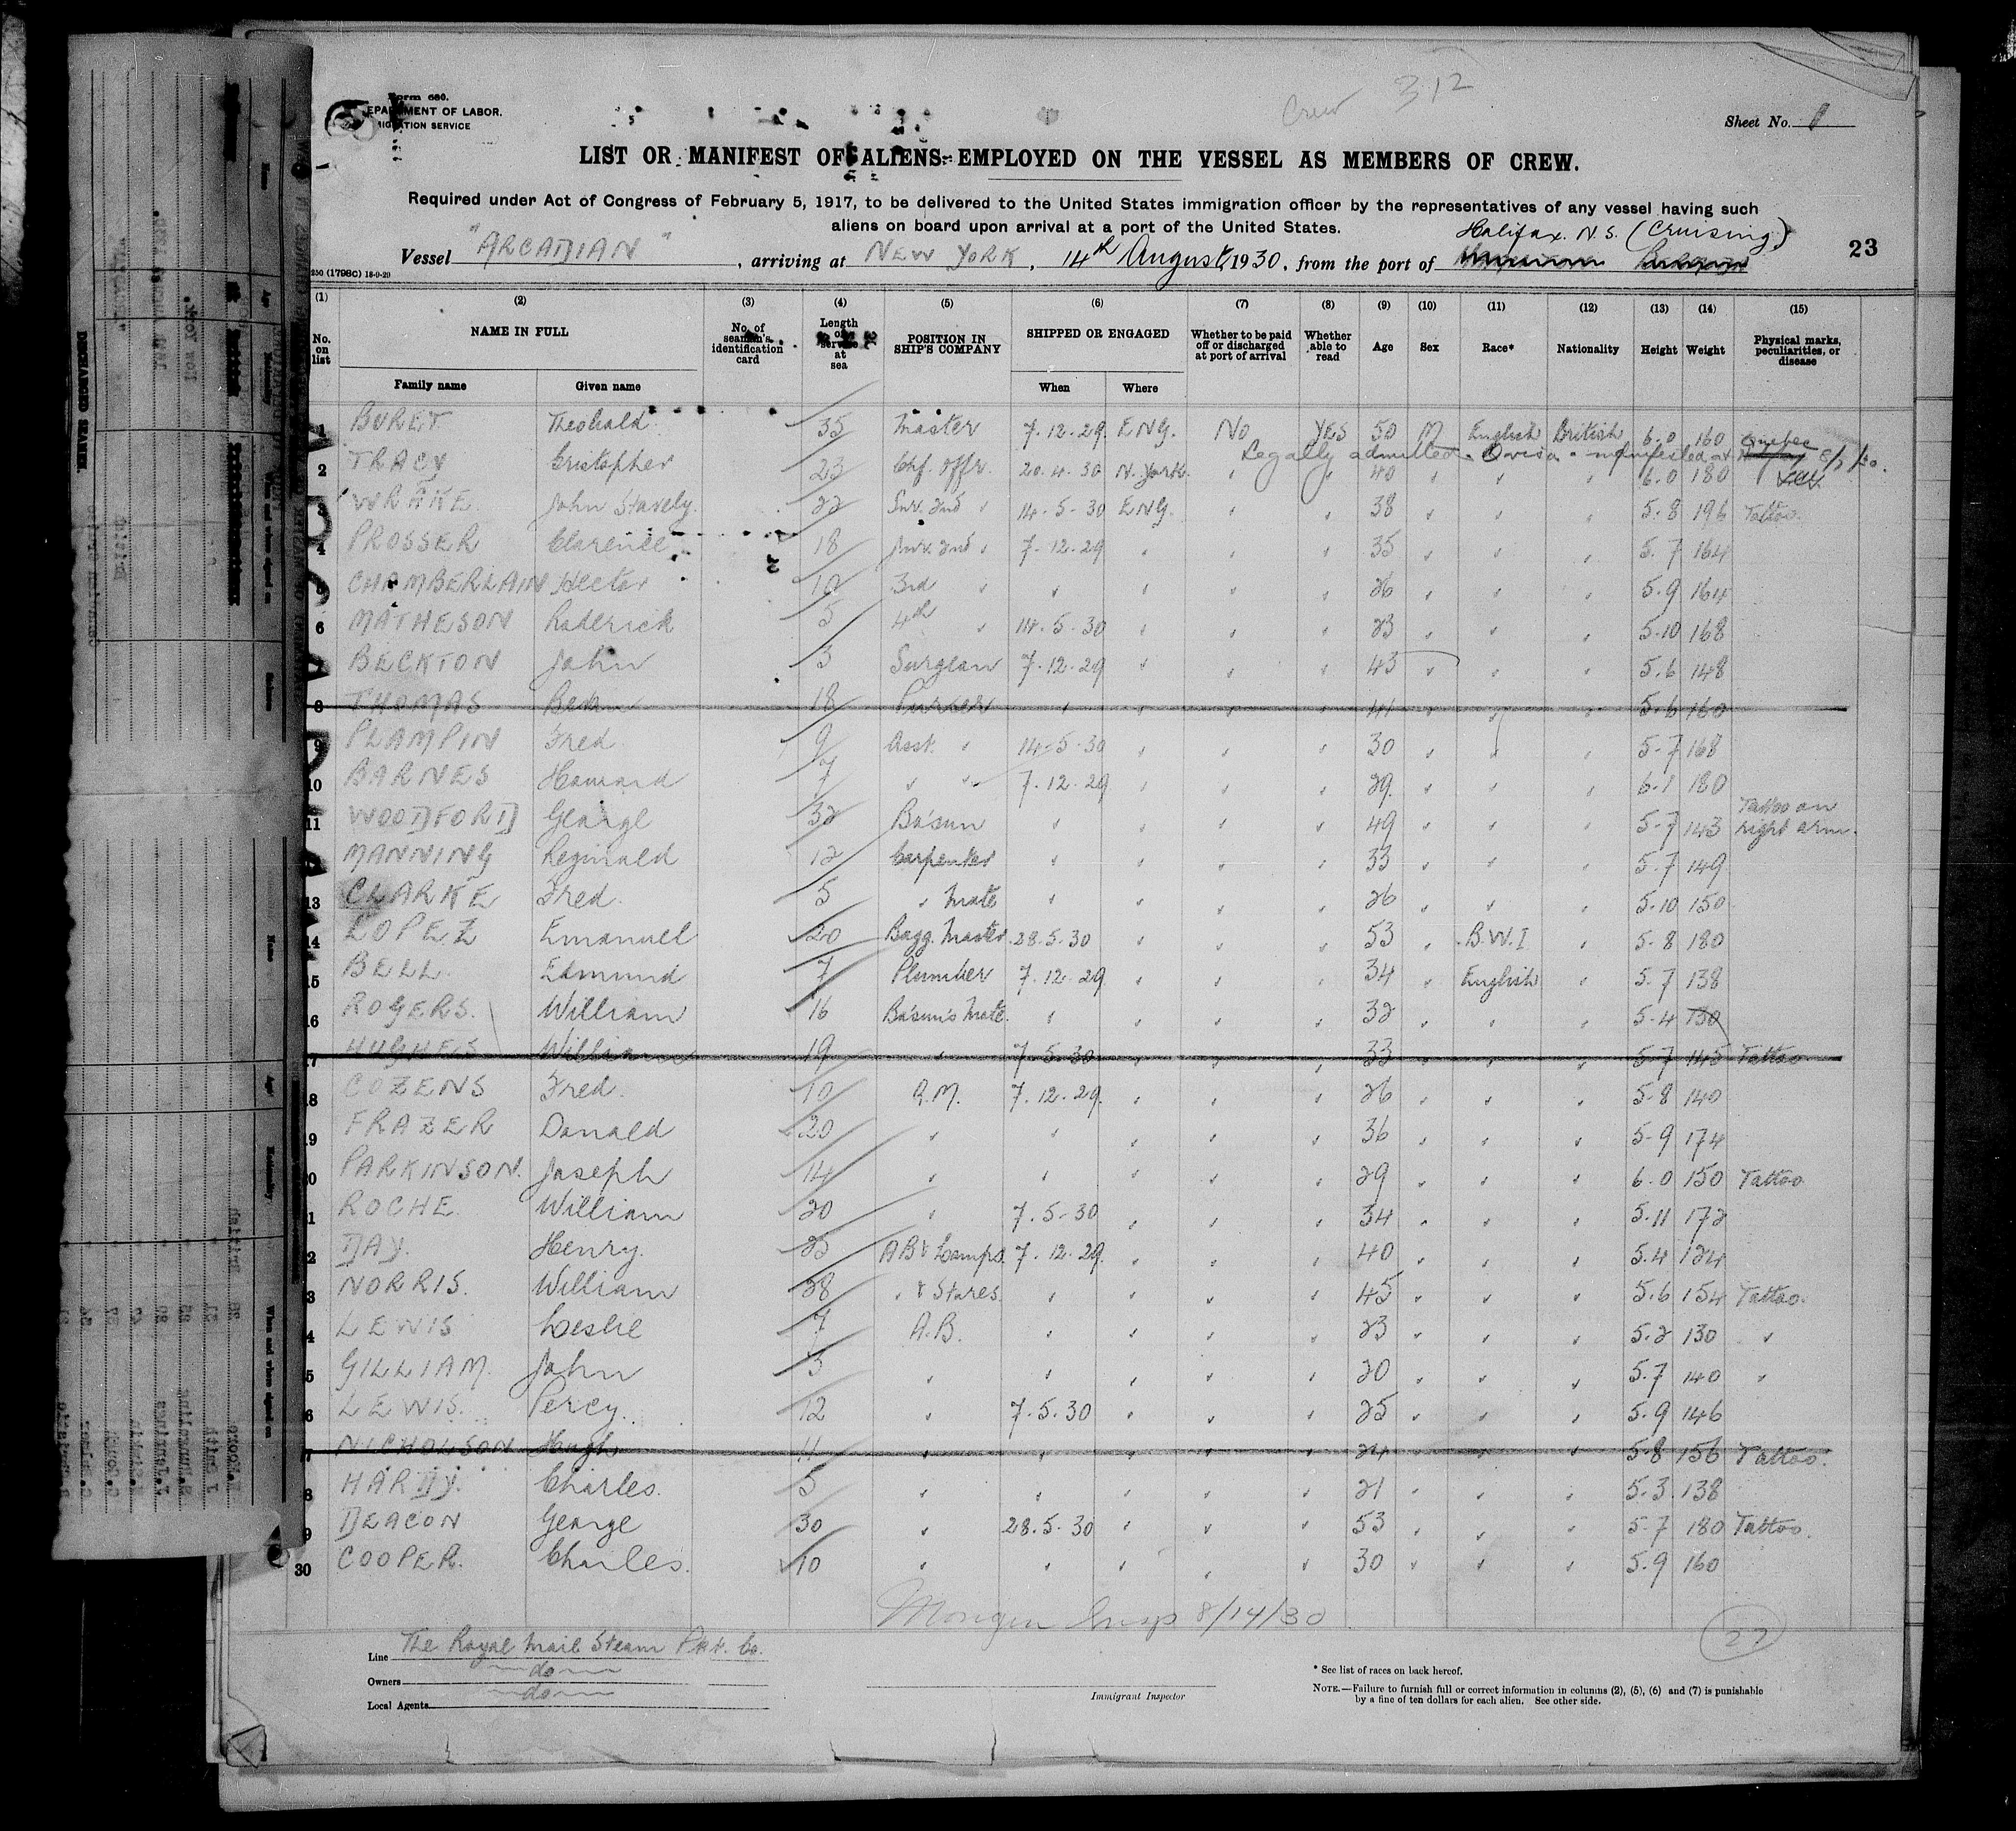 Crew 312
Form 680.
DEPARTMENT OF LABOR.
IMMIGRATION SERVICE
Sheet No. 1
LIST OR MANIFEST OF ALIENS EMPLOYED ON THE VESSEL AS MEMBERS OF CREW.
Required under Act of Congress of February 5, 1917, to be delivered to the United States immigration officer by the representatives of any vessel having such
aliens on board upon arrival at a port of the United States.
Halifax. N.S. (Cruising)
Vessel "ARCADIAN", arriving at NEW YORK, 14th August, 1930, from the port of
23
(1) (2) (3) (4) (5) (6) (7) (8) (9) (10) (11) (12) (13) (14) (15)
No. on list NAME IN FULL Family name Given name No. of seaman's identification card Length of service at sea POSITION IN SHIP'S COMPANY SHIPPED OR ENGAGED When Where Whether to be paid off or discharged at port of arrival Whether able to read Age Sex Race* Nationality Height Weight Physical marks, peculiarities, or disease
1 BURET Theobald 35 Master 7.12.29 ENG. NO YES 50 M English British 6.0 160
Legally admitted manifested at Quebec
2 TRACY Cristopher 23 Chf. Offr. 20.4.30 N.York " " 40 " " " 6.0 180
3 WRAKE John Stavely 22 Snr. 2nd " 14-5-30 ENG. " " 38 " " " 5.8 196 Tattoo.
4 PROSSER Clarence 18 Jnr. 2nd " 7-12-29 " " " 35 " " " 5.7 164
5 CHAMBERLAIN Hector 10 3rd " " " " " 26 " " " 5.9 164
6 MATHESON Roderick 5 4th " 14.5.30 " " " 23 " " " 5.10 168
7 BECKTON John 3 Surgeon 7.12.29 " " " 43 " " " 5.6 148
8 THOMAS 18 Purser " " " " 41 " " " 5.6 160
9 PLAMPIN Fred 9 Asst. " 14-5-30 " " " 30 " " " 5-7 168
10 BARNES Howard 7 " " 7.12.29 " " " 29 " " " 6.1 180
11 WOODFORD George 32 Bo'sun " " " " 49 " " " 5-7 143 Tattoo on right arm.
12 MANNING Reginald 12 Carpenter " " " " 33 " " " 5.7 149
13 CLARKE Fred. 5 " Mate " " " " 26 " " " 5.10 150
14 LOPEZ Emanuel 20 Bagg. Master 28.5.30 " " " 53 " B.W.I " 5.8 180
15 BELL Edmund 7 Plumber 7.12.29 " " " 34 " English " 5.7 138
16 ROGERS. William 16 Bo'sun's Mate. " " " " 32 " " " 5-4 130
17 HUGHES William 19 " 7.5.30 " " " 33 " " " 5-7 145 Tattoo
18 COZENS Fred. 10 Q.M. 7.12.29. " " " 26 " " " 5-8 140
19 FRAZER Donald 20 " " " " " 36 " " " 5-9 174
20 PARKINSON. Joseph 14 " " " " " 29 " " " 6.0 150 Tattoo
21 ROCHE William 20 " 7.5-30 " " " 34 " " " 5.11 172
22 DAY. Henry. 22 AB & Lamps. 7.12.29. " " " 40 " " " 5.4 124
23 NORRIS. William 28 " & Stores. " " " " 45 " " " 5.6 154 Tattoo.
24 LEWIS Leslie 7 A.B. " " " " 23 " " " 5.2 130 "
25 GILLIAM. John 3 " " " " " 20 " " " 5.7 140 "
26 LEWIS. Percy. 12 " 7.5.30 " " " 25 " " " 5.9 146
27 NICHOLSON Hugh 11 " " " " " 24 " " " 5-8 156 Tattoo.
28 HARDY. Charles. 5 " " " " " 21 " " " 5.3 138
29 DEACON George 30 " 28.5.30 " " " 53 " " " 5.7 180 Tattoo.
30 COOPER. Charles. 10 " " " " " 30 " " " 5.9 160
Insp 8/14/30
27
Line The Royal Mail Steam Pkt. Co.
Owners do
Local Agents do
Immigrant Inspector
* See list of races on back hereof.
NOTE.—Failure to furnish full or correct information in columns (2), (5), (6) and (7) is punishable
by a fine of ten dollars for each alien. See other side.